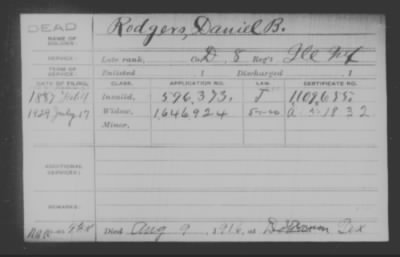 DEAD
NAME OF SOLDIER: Rodgers, Daniel B.
SERVICE: Late rank, Co. D, 8 Reg't Ill Inf
TERM OF SERVICE: Enlisted , 1 Discharged , 1
DATE OF FILING. CLASS. APPLICATION NO. LAW. CERTIFICATE NO.
1887 Invalid, 596,373. 1109,655.
1929 July 17 Widow, 1646924 a 1832
Minor,
ADDITIONAL SERVICES:
REMARKS:
Died Aug 9, 191 at Tex